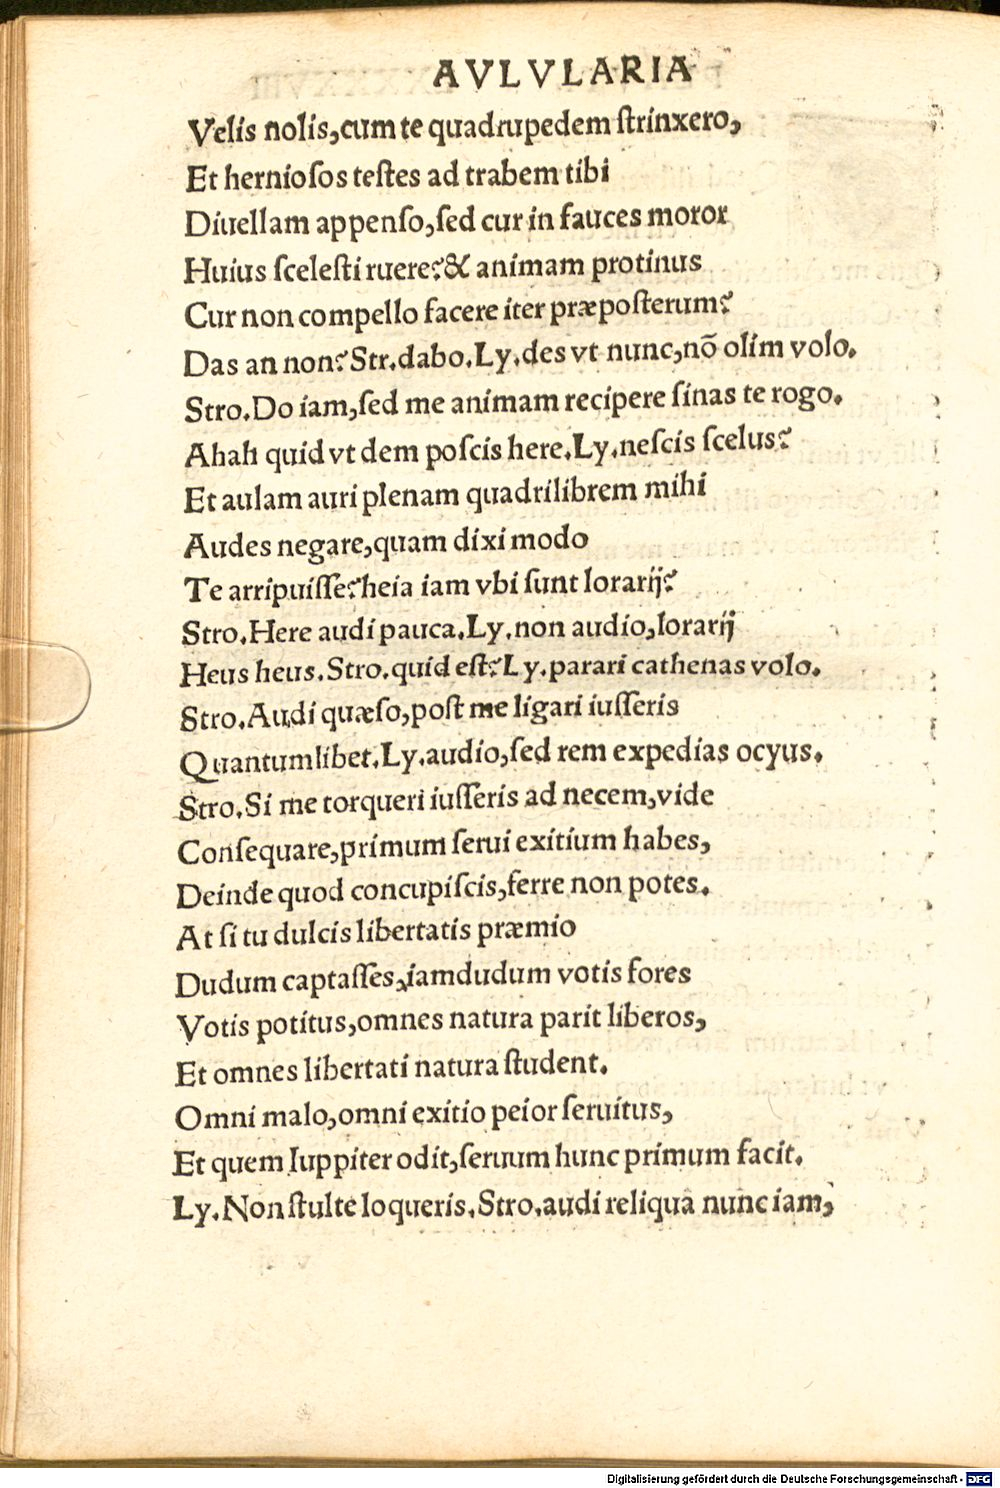 AVLVLARIA
Velis nolis,cum te quadrupedem ſtrinxero,
Et hernioſos teſtes ad trabem tibi
Diuellam appenſo,ſed cur in fauces moror
Huius ſceleſti ruere?& animam protinus
Cur non compello facere iter præpoſterum?
Das an non?Str.dabo.Ly.des vt nunc,nõ olim volo.
Stro.Do iam,ſed me animam recipere ſinas te rogo.
Ahah quid vt dem poſcis here.Ly.neſcis ſcelus?
Et aulam auri plenam quadrilibrem mihi
Audes negare,quam dixi modo
Te arripuiſſe?heia iam vbi ſunt lorarij?
Stro.Here audi pauca.Ly.non audio,lorarij
Heus heus.Stro.quid eſt?Ly.parari cathenas volo.
Stro.Audi quæſo,poſt me ligari iuſſeris
Quantumlibet.Ly.audio,ſed rem expedias ocyus.
Stro.Si me torqueri iuſſeris ad necem,vide
Conſequare,primum ſerui exitium habes,
Deinde quod concupiſcis,ferre non potes.
At ſi tu dulcis libertatis præmio
Dudum captaſſes,iamdudum votis fores
Votis potitus,omnes natura parit liberos,
Et omnes libertati natura ſtudent.
Omni malo,omni exitio peior ſeruitus,
Et quem Iuppiter odit,ſeruum hunc primum facit.
Ly.Non ſtulte loqueris.Stro.audi reliqua nunc iam,
Digitalisierung gefördert durch die Deutsche Forschungsgemeinschaft - DFG